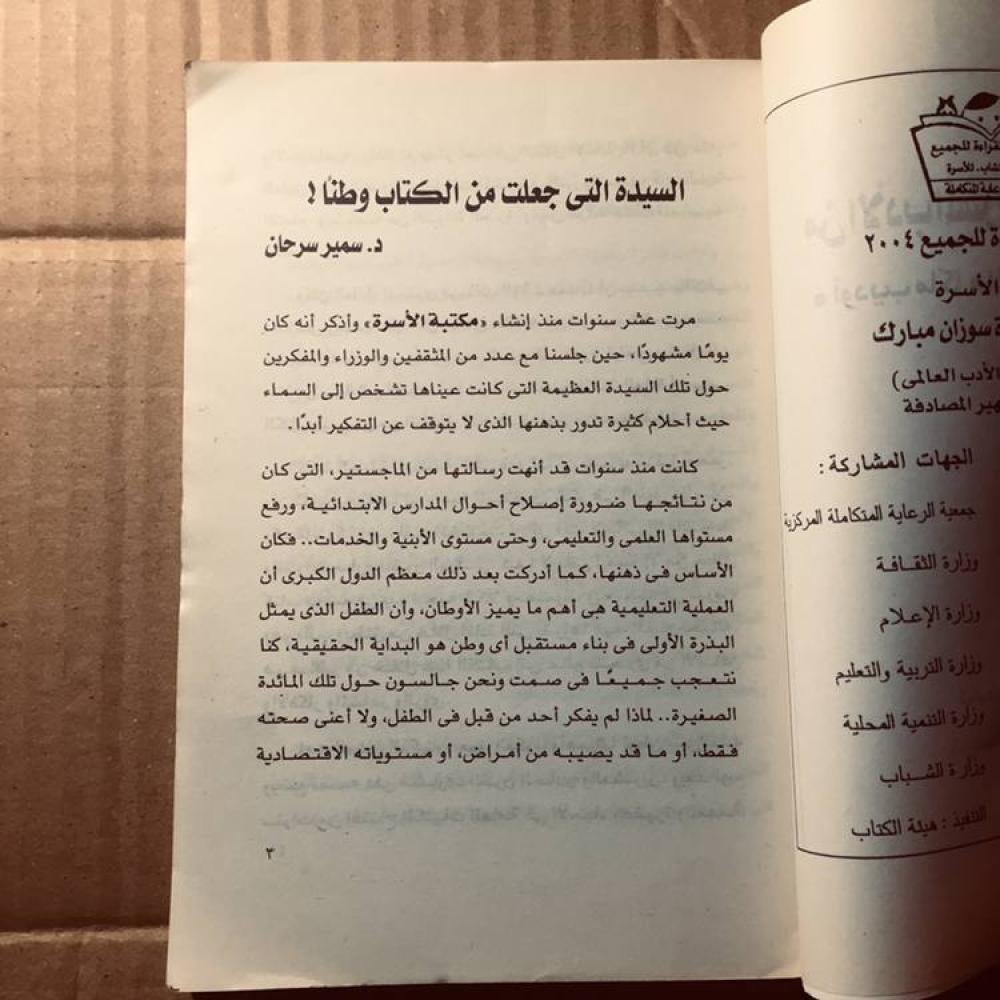 القراءة للجميع
للأسرة
مهرجان القراءة للجميع ٢٠٠٤
الأسرة
سوزان مبارك
الأدب العالمى)
المصادفة
الجهات المشاركة :
جمعية الرعاية المتكاملة المركزية
وزارة الثقافة
وزارة الإعلام
وزارة التربية والتعليم
وزارة التنمية المحلية
وزارة الشباب
التنفيذ : هيئة الكتاب
السيدة التى جعلت من الكتاب وطنًا !
د. سمير سرحان
مرت عشر سنوات منذ إنشاء «مكتبة الأسرة» وأذكر أنه كان
يومًا مشهودًا، حين جلسنا مع عدد من المثقفين والوزراء والمفكرين
حول تلك السيدة العظيمة التى كانت عيناها تشخص إلى السماء
حيث أحلام كثيرة تدور بذهنها الذى لا يتوقف عن التفكير أبدًا.
كانت منذ سنوات قد أنهت رسالتها من الماجستير، التى كان
من نتائجها ضرورة إصلاح أحوال المدارس الابتدائية، ورفع
مستواها العلمى والتعليمى، وحتى مستوى الأبنية والخدمات.. فكان
الأساس فى ذهنها، كما أدركت بعد ذلك معظم الدول الكبرى أن
العملية التعليمية هى أهم ما يميز الأوطان، وأن الطفل الذى يمثل
البذرة الأولى فى بناء مستقبل أى وطن هو البداية الحقيقية، كنا
نتعجب جميعًا فى صمت ونحن جالسون حول تلك المائدة
الصغيرة.. لماذا لم يفكر أحد من قبل فى الطفل، ولا أعنى صحته
فقط، أو ما قد يصيبه من أمراض، أو مستوياته الاقتصادية
٣